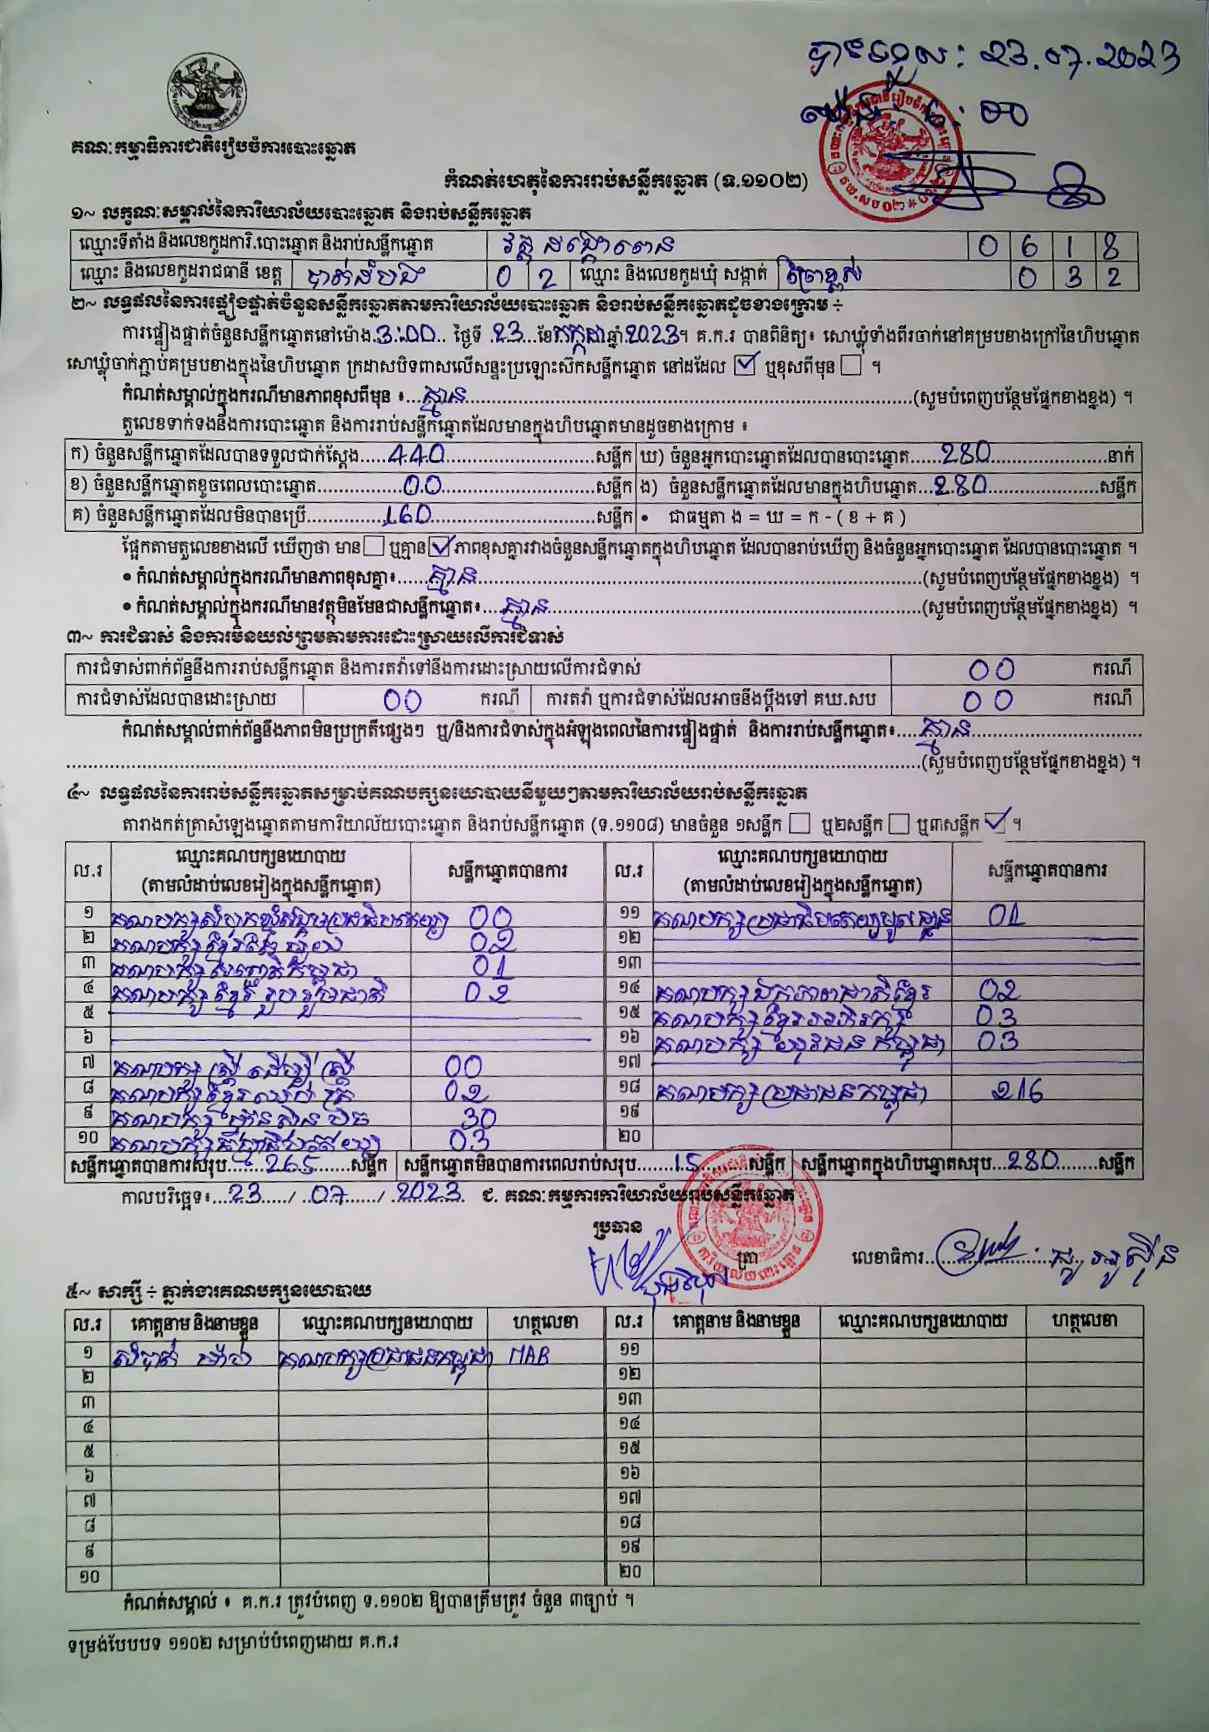 បានទទួល: 23.07.2023
គណៈកម្មាធិការជាតិរៀបចំការបោះឆ្នោត
កំណត់ហេតុនៃការរាប់សន្លឹកឆ្នោត (ទ.១១០២)
១~ លក្ខណៈសម្គាល់នៃការិយាល័យបោះឆ្នោត និងរាប់សន្លឹកឆ្នោត
ឈ្មោះទីតាំង និងលេខកូដការិ.បោះឆ្នោត និងរាប់សន្លឹកឆ្នោត វត្ត 0 6 1 8
ឈ្មោះ និងលេខកូដរាជធានី ខេត្ត បាត់ដំបង 0 2 ឈ្មោះ និងលេខកូដឃុំ សង្កាត់ 0 3 2
២~ លទ្ធផលនៃការផ្ទៀងផ្ទាត់ចំនួនសន្លឹកឆ្នោតតាមការិយាល័យបោះឆ្នោត និងរាប់សន្លឹកឆ្នោតដូចខាងក្រោម ÷
ការផ្ទៀងផ្ទាត់ចំនួនសន្លឹកឆ្នោតនៅម៉ោង.3:00.. ថ្ងៃទី .23...ខែកក្កដាឆ្នាំ.2023។ គ.ក.រ បានពិនិត្យ៖ សោឃ្លុំទាំងពីរចាក់នៅគម្របខាងក្រៅនៃហិបឆ្នោត
សោឃ្លុំចាក់ភ្ជាប់គម្របខាងក្នុងនៃហិបឆ្នោត ក្រដាសបិទពាសលើសន្ទះប្រឡោះស៊កសន្លឹកឆ្នោត នៅដដែល ☑ ឬខុសពីមុន ☐ ។
កំណត់សម្គាល់ក្នុងករណីមានភាពខុសពីមុន ៖...គ្មាន...(សូមបំពេញបន្ថែមផ្នែកខាងខ្នង) ។
តួលេខទាក់ទងនឹងការបោះឆ្នោត និងការរាប់សន្លឹកឆ្នោតដែលមានក្នុងហិបឆ្នោតមានដូចខាងក្រោម ៖
ក) ចំនួនសន្លឹកឆ្នោតដែលបានទទួលជាក់ស្ដែង.....440.....សន្លឹក ឃ) ចំនួនអ្នកបោះឆ្នោតដែលបានបោះឆ្នោត.....280.....នាក់
ខ) ចំនួនសន្លឹកឆ្នោតខូចពេលបោះឆ្នោត.....00.....សន្លឹក ង) ចំនួនសន្លឹកឆ្នោតដែលមានក្នុងហិបឆ្នោត...280.....សន្លឹក
គ) ចំនួនសន្លឹកឆ្នោតដែលមិនបានប្រើ.....160.....សន្លឹក • ជាធម្មតា ង = ឃ = ក - ( ខ + គ )
ផ្អែកតាមតួលេខខាងលើ ឃើញថា មាន ☐ ឬគ្មាន ☑ ភាពខុសគ្នារវាងចំនួនសន្លឹកឆ្នោតក្នុងហិបឆ្នោត ដែលបានរាប់ឃើញ និងចំនួនអ្នកបោះឆ្នោត ដែលបានបោះឆ្នោត ។
• កំណត់សម្គាល់ក្នុងករណីមានភាពខុសគ្នា៖.....គ្មាន.....(សូមបំពេញបន្ថែមផ្នែកខាងខ្នង) ។
• កំណត់សម្គាល់ក្នុងករណីមានវត្ថុមិនមែនជាសន្លឹកឆ្នោត៖...គ្មាន.....(សូមបំពេញបន្ថែមផ្នែកខាងខ្នង) ។
៣~ ការជំទាស់ និងការមិនយល់ព្រមតាមការដោះស្រាយលើការជំទាស់
ការជំទាស់ពាក់ព័ន្ធនឹងការរាប់សន្លឹកឆ្នោត និងការតវ៉ាទៅនឹងការដោះស្រាយលើការជំទាស់ 00 ករណី
ការជំទាស់ដែលបានដោះស្រាយ 00 ករណី ការតវ៉ា ឬការជំទាស់ដែលអាចនឹងប្ដឹងទៅ គឃ.សប 00 ករណី
កំណត់សម្គាល់ពាក់ព័ន្ធនឹងភាពមិនប្រក្រតីផ្សេងៗ ឬ/និងការជំទាស់ក្នុងអំឡុងពេលនៃការផ្ទៀងផ្ទាត់ និងការរាប់សន្លឹកឆ្នោត៖....គ្មាន.....
.....(សូមបំពេញបន្ថែមផ្នែកខាងខ្នង) ។
៤~ លទ្ធផលនៃការរាប់សន្លឹកឆ្នោតសម្រាប់គណបក្សនយោបាយនីមួយៗតាមការិយាល័យរាប់សន្លឹកឆ្នោត
តារាងកត់ត្រាសំឡេងឆ្នោតតាមការិយាល័យបោះឆ្នោត និងរាប់សន្លឹកឆ្នោត (ទ.១១០៨) មានចំនួន ១សន្លឹក ☐ ឬ២សន្លឹក ☐ ឬ៣សន្លឹក ☑ ។
ល.រ ឈ្មោះគណបក្សនយោបាយ (តាមលំដាប់លេខរៀងក្នុងសន្លឹកឆ្នោត) សន្លឹកឆ្នោតបានការ ល.រ ឈ្មោះគណបក្សនយោបាយ (តាមលំដាប់លេខរៀងក្នុងសន្លឹកឆ្នោត) សន្លឹកឆ្នោតបានការ
១ គណបក្សសំបុកឃ្មុំសង្គមប្រជាធិបតេយ្យ 00 ១១ គណបក្សប្រជាធិបតេយ្យមូលដ្ឋាន 01
២ គណបក្ស 02 ១២
៣ គណបក្ស 01 ១៣
៤ គណបក្សខ្មែរ រួបរួមជាតិ 02 ១៤ គណបក្សឯកភាពជាតិខ្មែរ 02
៥ ១៥ គណបក្សខ្មែរអភិរក្ស 03
៦ ១៦ គណបក្ស យុវជន កម្ពុជា 03
៧ គណបក្ស ស្ត្រី ដើម្បី ស្ត្រី 00 ១៧
៨ គណបក្សខ្មែរឈប់ ក្រ 02 ១៨ គណបក្សប្រជាជនកម្ពុជា 216
៩ គណបក្ស ហ្វ៊ុនស៊ិនប៉ិច 30 ១៩
១០ គណបក្ស 03 ២០
សន្លឹកឆ្នោតបានការសរុប......265......សន្លឹក សន្លឹកឆ្នោតមិនបានការពេលរាប់សរុប......15.....សន្លឹក សន្លឹកឆ្នោតក្នុងហិបឆ្នោតសរុប...280.......សន្លឹក
កាលបរិច្ឆេទ៖...23...../..07....../..2023. ជ. គណៈកម្មការការិយាល័យរាប់សន្លឹកឆ្នោត
ប្រធាន
ត្រា លេខាធិការ
៥~ សាក្សី ÷ ភ្នាក់ងារគណបក្សនយោបាយ
ល.រ គោត្តនាម និងនាមខ្លួន ឈ្មោះគណបក្សនយោបាយ ហត្ថលេខា ល.រ គោត្តនាម និងនាមខ្លួន ឈ្មោះគណបក្សនយោបាយ ហត្ថលេខា
១ គណបក្សប្រជាជនកម្ពុជា MAB ១១
២ ១២
៣ ១៣
៤ ១៤
៥ ១៥
៦ ១៦
៧ ១៧
៨ ១៨
៩ ១៩
១០ ២០
កំណត់សម្គាល់ ៖ គ.ក.រ ត្រូវបំពេញ ទ.១១០២ ឱ្យបានត្រឹមត្រូវ ចំនួន ៣ច្បាប់ ។
ទម្រង់បែបបទ ១១០២ សម្រាប់បំពេញដោយ គ.ក.រ